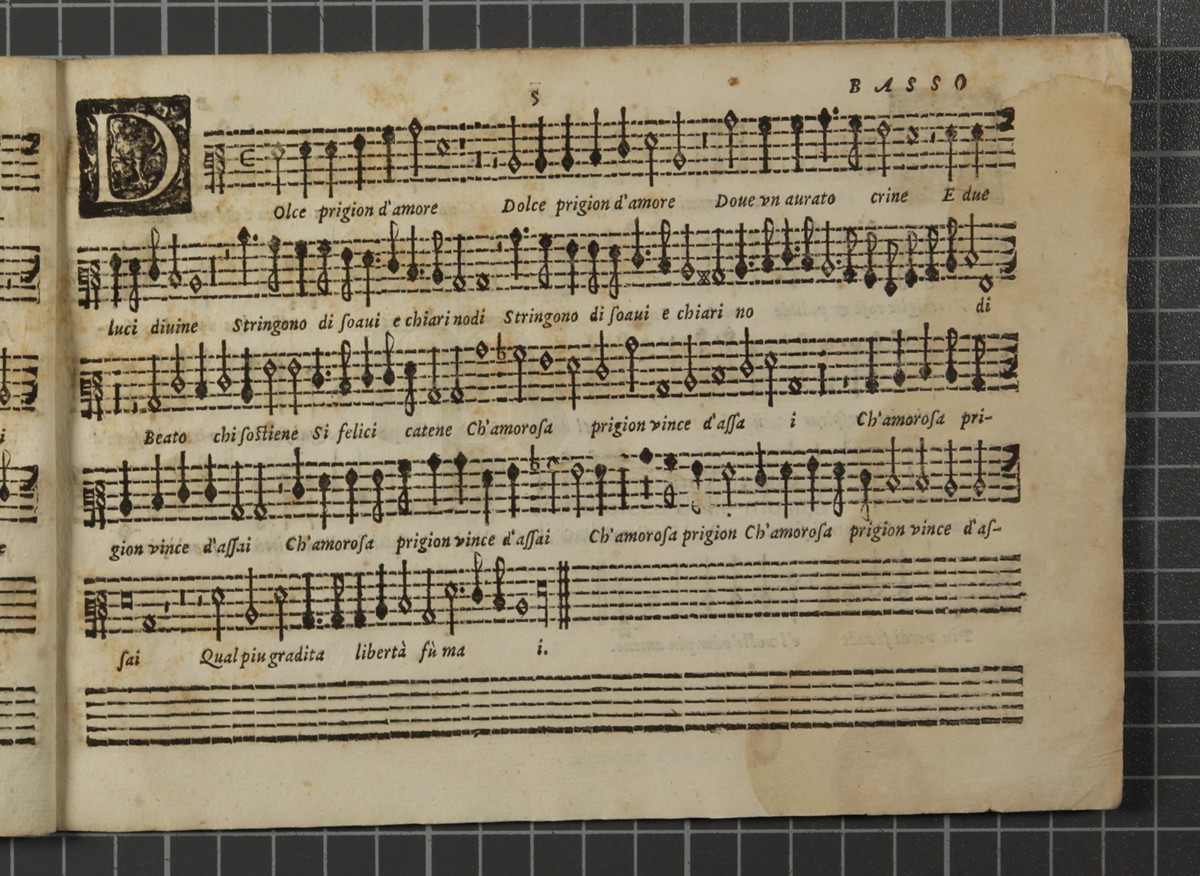 5 BASSO
DOlce prigion d'amore Dolce prigion d'amore Doue vn aurato crine E due
luci diuine Stringono di ſoaui e chiari nodi Stringono di ſoaui e chiari no di
Beato chi ſoſtiene Si felici catene Ch'amoroſa prigion vince d'aſſa i Ch'amoroſa pri-
gion vince d'aſſai Ch'amoroſa prigion vince d'aſſai Ch'amoroſa prigion Ch'amoroſa prigion vince d'aſ-
ſai Qual piu gradita libertà fù ma i.